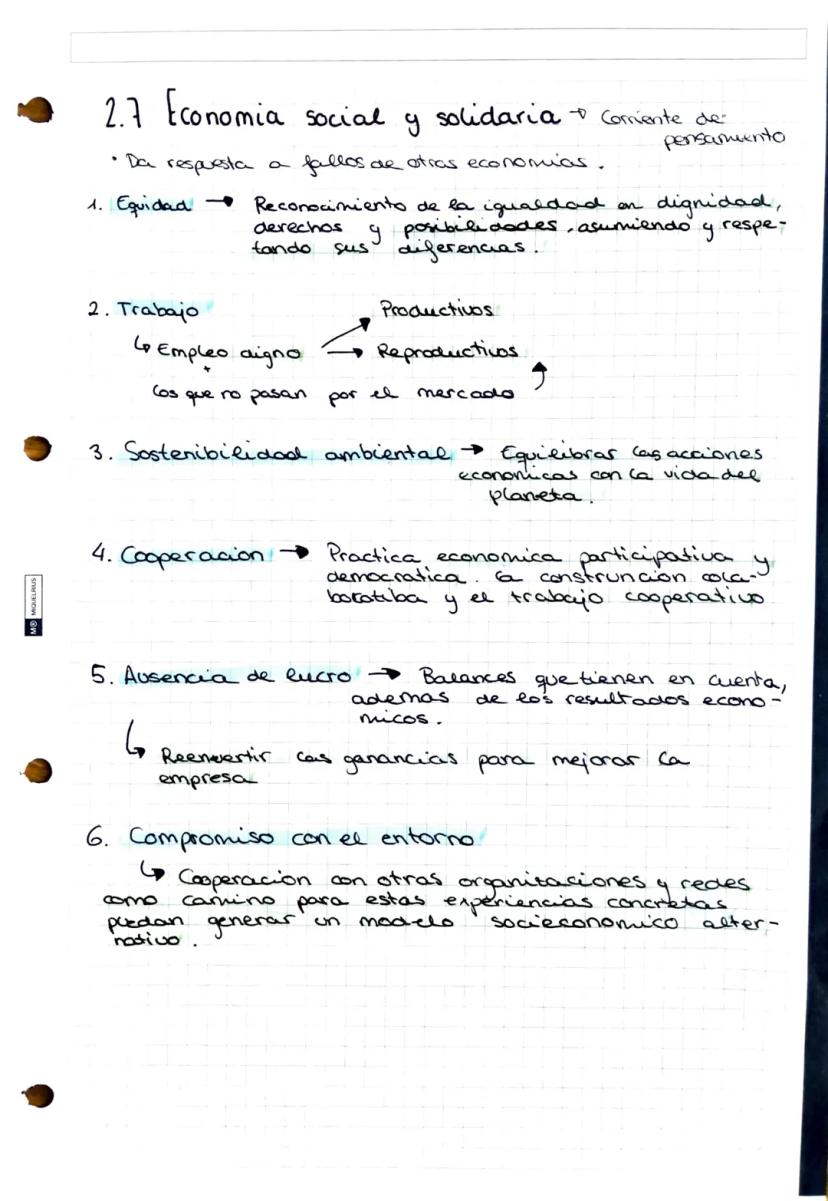 2.7 Economia social y solidaria → Corriente de
pensamiento
• Da respuesta a fallos de otras economias.
1. Equidad → Reconocimiento de la igualdad en dignidad,
derechos y posibilidades, asumiendo y respe-
tando sus diferencias.
2. Trabajo
Productivos
↳ Empleo digno → Reproductivos
+
los que no pasan por el mercado
3. Sostenibilidad ambiental → Equilibrar las acciones
economicas con la vida del
planeta.
4. Cooperacion → Practica economica participativa y
democratica. la construncion cola-
boratiba y el trabajo cooperativo
5. Ausencia de lucro → Balances que tienen en cuenta,
ademas de los resultados econo-
micos.
↳ Reenvertir las ganancias para mejorar la
empresa
6. Compromiso con el entorno
↳ Cooperacion con otras organizaciones y redes
como camino para estas experiencias concretas
puedan generar un modelo socieconomico alter-
nativo.
MR MIQUELRIUS